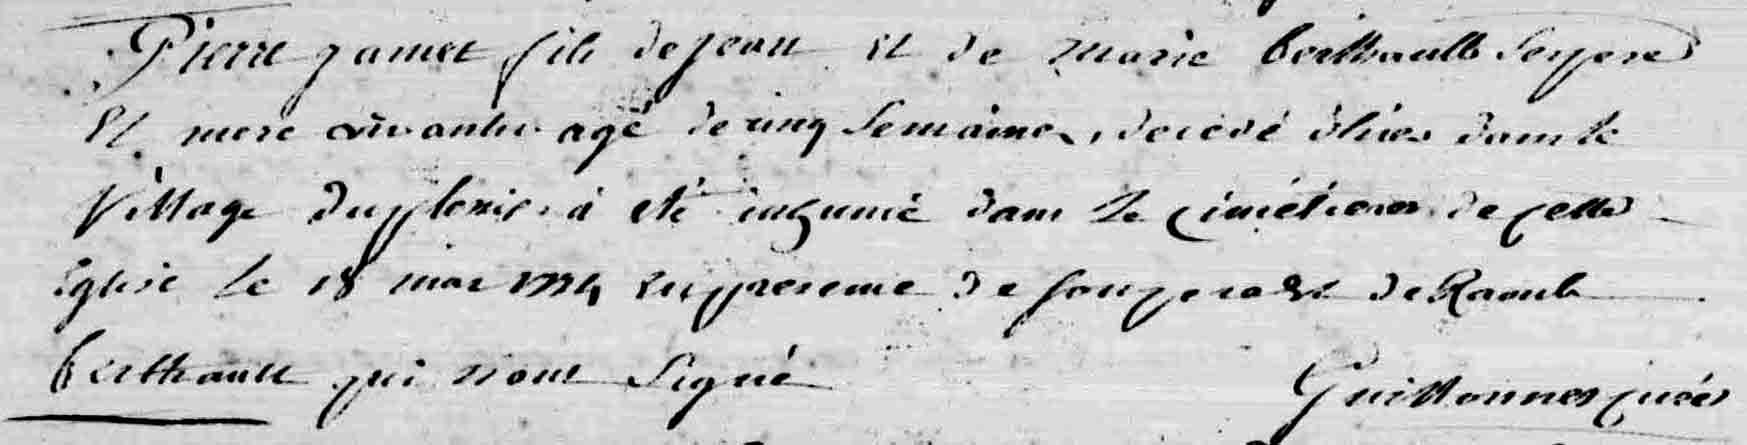 Pierre gamet fils de jean et de Marie berthault ses pere
Et mere vivants agé de cinq semaines, decedé d'hier dans le
Village du plexis à eté inhumé dans le cimétiere de cette
Eglise le 18 mai en presence de son pere et de Raoul
berthault qui n'ont signé
Guillonner curé